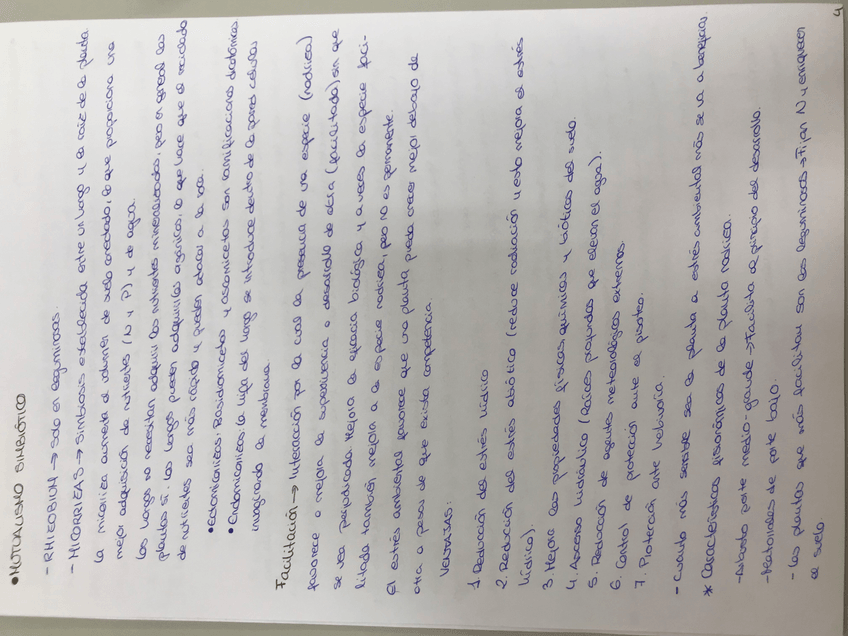 • MUTUALISMO SIMBIÓTICO
- RHIZOBIUM → Solo en leguminosas.
- MICORRIZAS → Simbiosis establecida entre un hongo y la raíz de la planta.
La micorriza aumenta el volumen de suelo conectado, lo que proporciona una
mejor adquisición de nutrientes (N y P) y de agua.
Los hongos no necesitan adquirir los nutrientes mineralizados, pero en general las
plantas sí. Los hongos pueden adquirirlos orgánicos, lo que hace que el reciclado
de nutrientes sea más rápido y pueden atacar a la roca.
• Ectomicorrizas: Basidiomicetos y ascomicetos son ramificaciones dicotómicas
• Endomicorrizas: la hifa del hongo se introduce dentro de la pared celular
invaginando la membrana.
Facilitación → Interacción por la cual la presencia de una especie (nodriza)
favorece o mejora la supervivencia o desarrollo de otra (facilitada) sin que
se vea perjudicada. Mejora la eficacia biológica y a veces la especie faci-
litada también mejora a la especie nodriza, pero no es permanente.
El estrés ambiental favorece que una planta pueda crecer mejor debajo de
otra a pesar de que exista competencia.
VENTAJAS:
1. Reducción del estrés hídrico
2. Reducción del estrés abiótico (reduce radiación y esto mejora el estrés
hídrico).
3. Mejora las propiedades físicas, químicas y bióticas del suelo.
4. Ascenso hidráulico (Raíces profundas que elevan el agua).
5. Reducción de agentes meteorológicos extremos
6. Control de protección ante el pisoteo.
7. Protección ante herbivoría.
- Cuanto más sensible sea la planta a estrés ambiental más se va a beneficiar.
* Características fisionómicas de la planta nodriza.
- Arbusto porte medio-grande → Facilita al principio del desarrollo.
- Matorrales de porte bajo.
- Las plantas que más facilitan son las leguminosas → Fijan N y enriquecen
el suelo.
4